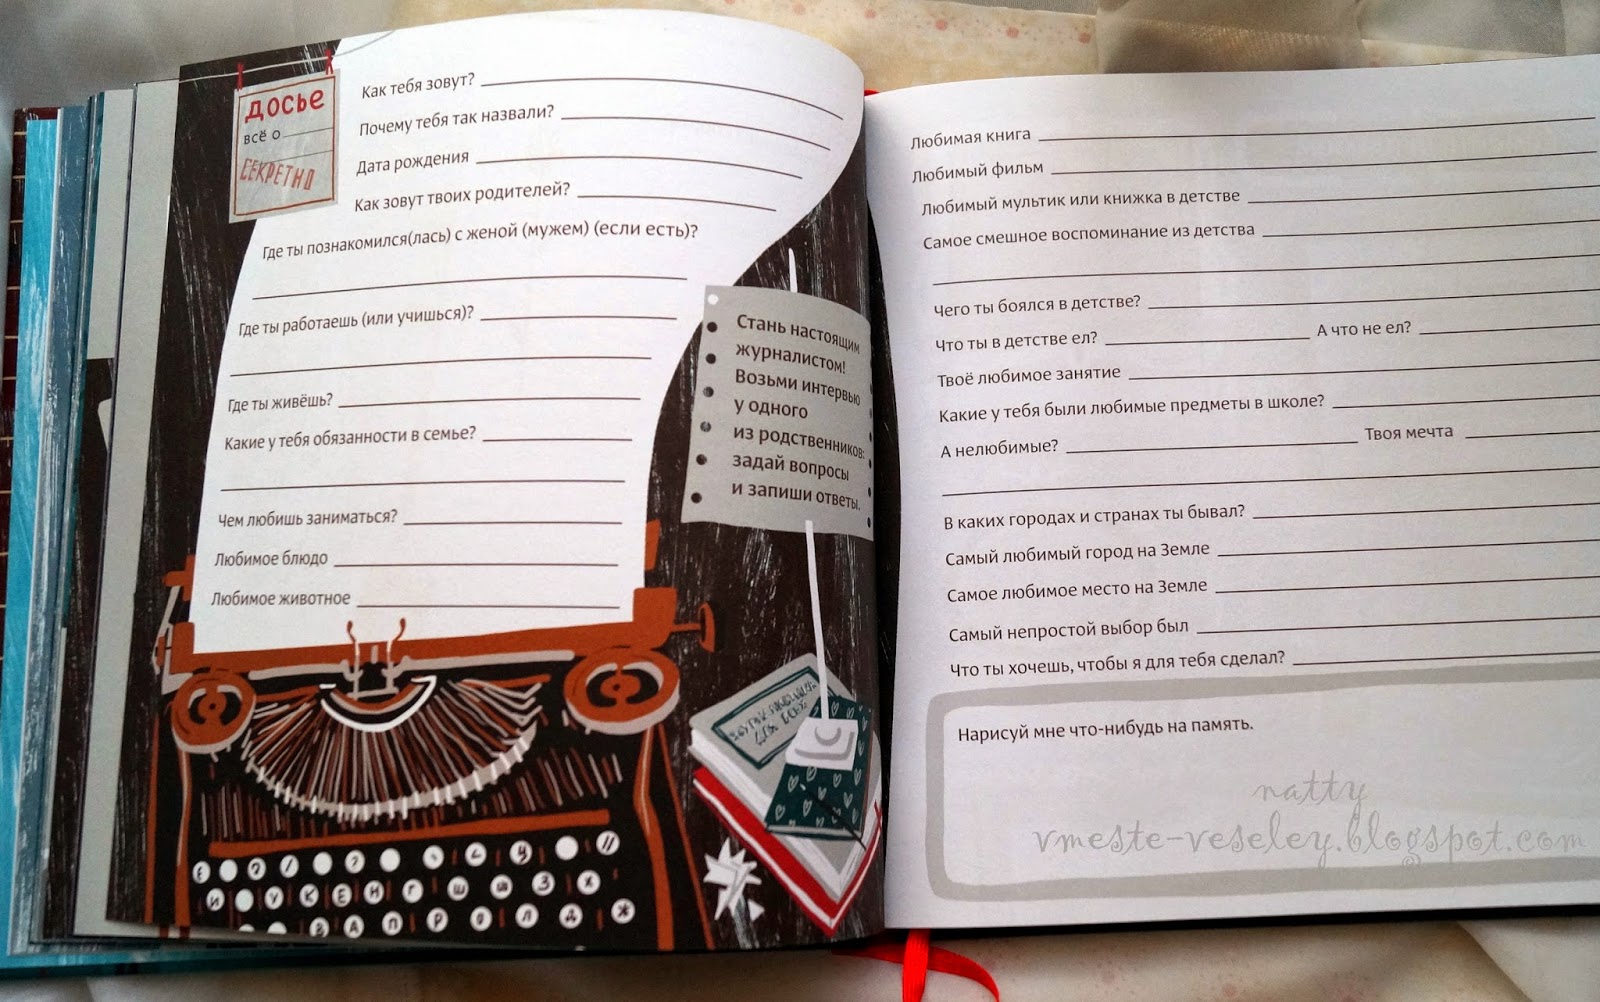 ДОСЬЕ
всё о
СЕКРЕТНО
Как тебя зовут?
Почему тебя так назвали?
Дата рождения
Как зовут твоих родителей?
Где ты познакомился(лась) с женой (мужем) (если есть)?
Где ты работаешь (или учишься)?
Где ты живёшь?
Какие у тебя обязанности в семье?
Чем любишь заниматься?
Любимое блюдо
Любимое животное
Стань настоящим
журналистом!
Возьми интервью
у одного
из родственников:
задай вопросы
и запиши ответы.
У К Е Н Г Ш Щ З Х
В А П Р О Л Д Ж
Любимая книга
Любимый фильм
Любимый мультик или книжка в детстве
Самое смешное воспоминание из детства
Чего ты боялся в детстве?
Что ты в детстве ел? А что не ел?
Твоё любимое занятие
Какие у тебя были любимые предметы в школе?
А нелюбимые? Твоя мечта
В каких городах и странах ты бывал?
Самый любимый город на Земле
Самое любимое место на Земле
Самый непростой выбор был
Что ты хочешь, чтобы я для тебя сделал?
Нарисуй мне что-нибудь на память.
natty
vmeste-veseley.blogspot.com